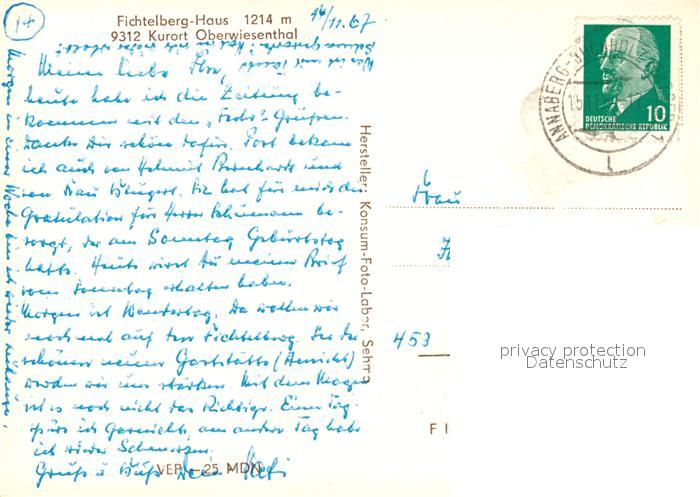 14
Fichtelberg-Haus 1214 m
9312 Kurort Oberwiesenthal
14/11.67
Meine liebe
heute habe ich die Zeitung be-
kommen mit den Grüßen.
Danke Dir schön dafür. Post bekam
ich auch von Helmut Bernhardt und
von Frau Sie hat für mich die
Gratulation für Herrn Schumann be-
sorgt, der am Sonntag Geburtstag
hatte. Heute wirst Du meinen Brief
vom Sonntag erhalten haben.
Morgen ist Wandertag. Da wollen wir
noch mal auf den Fichtelberg. In der
schönen neuen Gaststätte (Ansicht)
werden wir uns stärken. Mit dem Magen
ist es noch nicht das Richtige. Einen Tag
spüre ich garnichts, am andern Tag habe
ich wieder Schmerzen.
Gruß u. Kuß Dein
Morgen in einer Woche bin ich wieder zuhause.
VEB -25 MDN
Hersteller: Konsum-Foto-Labor, Sehma
ANNABERG-BUCHHOLZ
10
DEUTSCHE
DEMOKRATISCHE REPUBLIK
Frau
453
privacy protection
Datenschutz